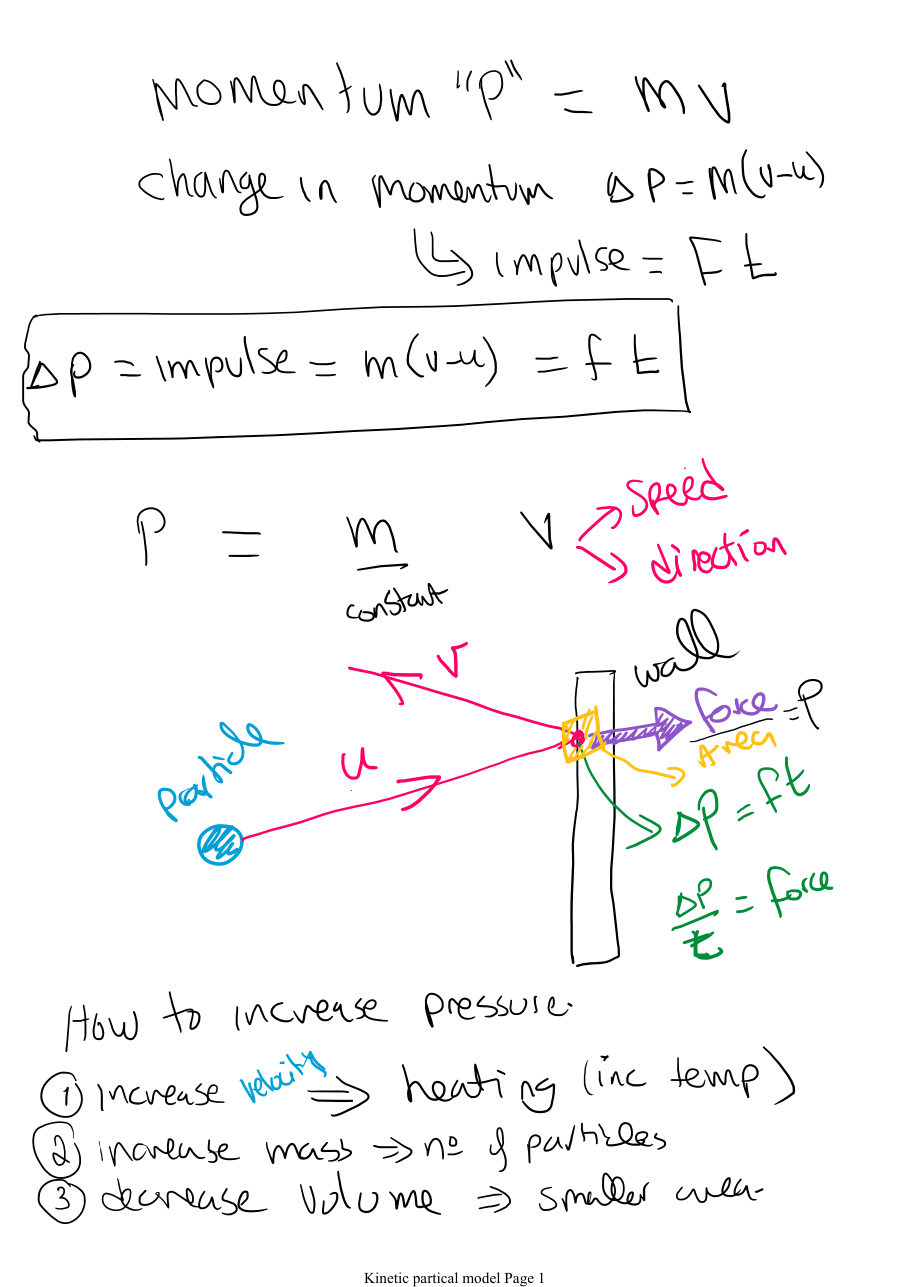 momentum "p" = mv
change in momentum Δp = m(v-u)
impulse = Ft
Δp = impulse = m(v-u) = ft
P = m v
constant
speed
direction
wall
v
force
Area
= P
particle
u
Δp = ft
Δp/t = force
How to increase pressure.
① increase velocity ⇒ heating (inc temp)
② increase mass ⇒ nº of particles
③ decrease volume ⇒ smaller area.
Kinetic partical model Page 1